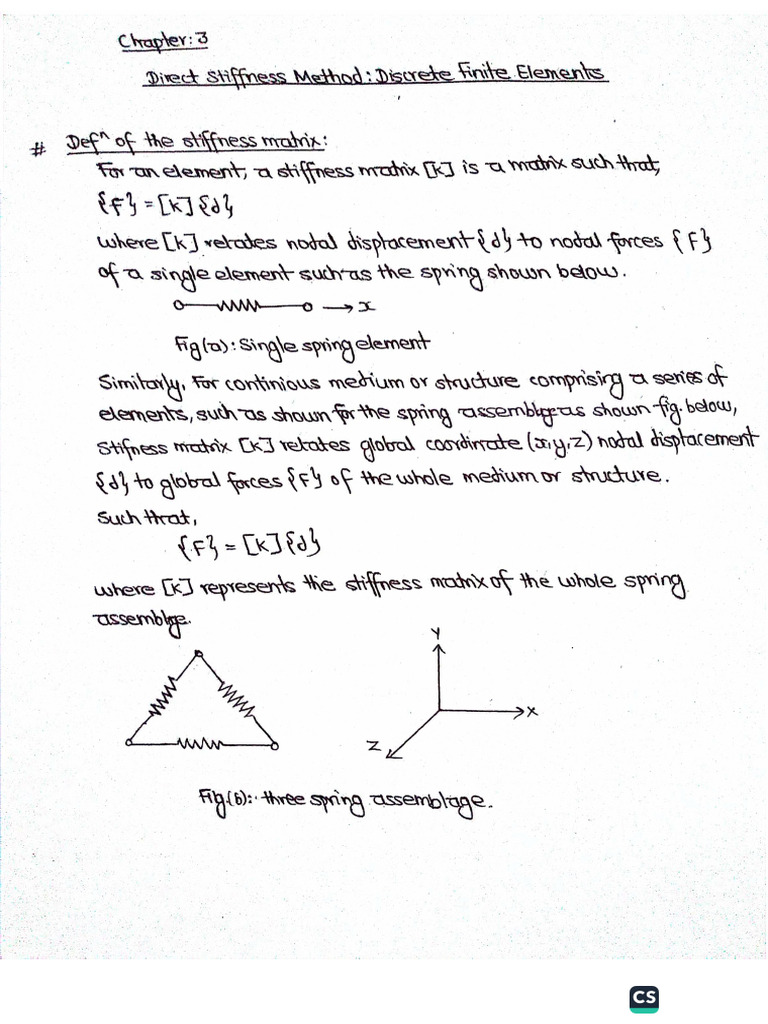 Chapter: 3
Direct Stiffness Method: Discrete Finite Elements
# Defⁿ of the stiffness matrix:
For an element, a stiffness matrix [k] is a matrix such that,
{f} = [k] {d}
where [k] relates nodal displacement {d} to nodal forces {f}
of a single element such as the spring shown below.
x
Fig(a): Single spring element
Similarly, For continious medium or structure comprising a series of
elements, such as shown for the spring assemblge as shown fig. below,
stifness matrix [K] relates global coordinate (x,y,z) nodal displacement
{d} to global forces {F} of the whole medium or structure.
Such that,
{F} = [K] {d}
where [K] represents the stiffness matrix of the whole spring
assemblge.
Y
X
Z
Fig.(b): three spring assemblage.
CS